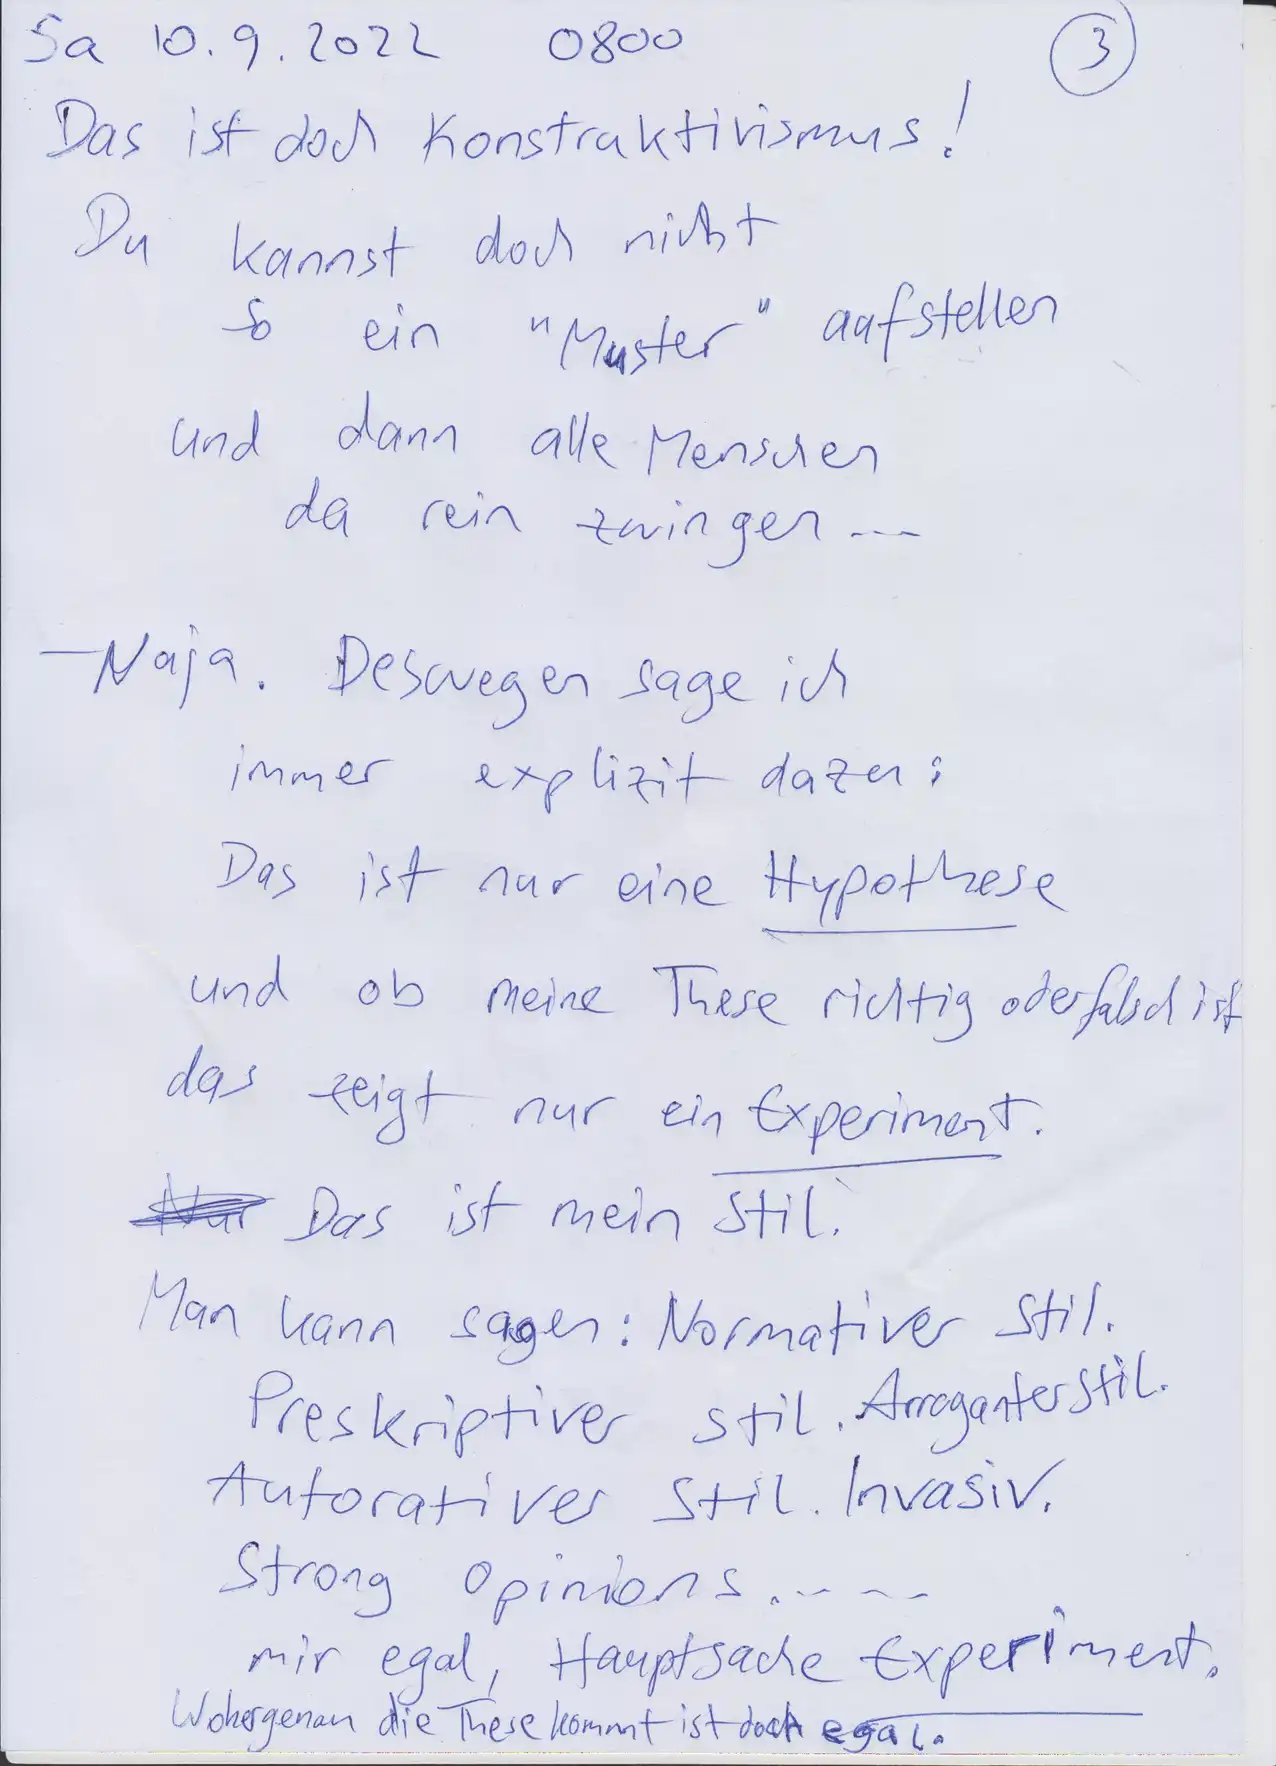 Sa 10.9.2022 0800 3
Das ist doch Konstruktivismus!
Du kannst doch nicht
so ein "Muster" aufstellen
und dann alle Menschen
da rein zwingen ---
— Naja. Deswegen sage ich
immer explizit dazu:
Das ist nur eine Hypothese
und ob meine These richtig oder falsch ist
das zeigt nur ein Experiment.
Nur Das ist mein Stil.
Man kann sagen: Normativer Stil.
Preskriptiver Stil. Arroganter Stil.
Autorativer Stil. Invasiv.
Strong Opinions. ----
mir egal, Hauptsache Experiment.
Woher genau die These kommt ist doch egal.